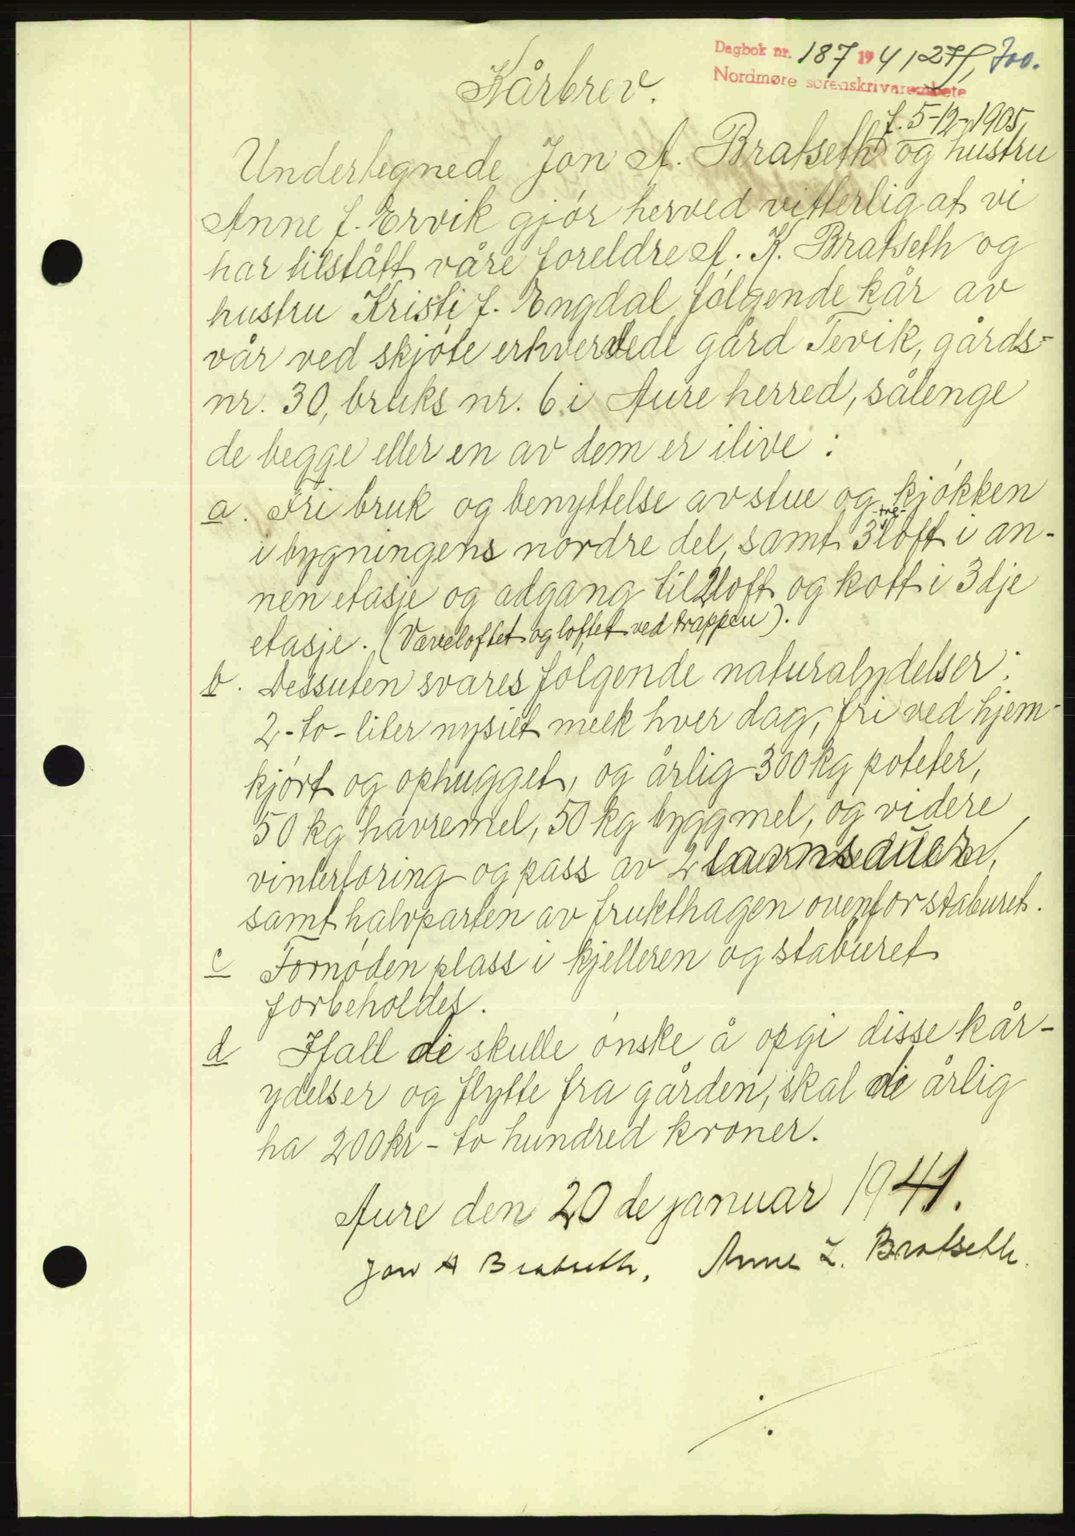 Dagbok nr. 187 1941 27/1, 700.
Nordmøre sorenskrivarembete
Kårbrev.
f. 5-12-1905,
Undertegnede Jon A. Bratseth og hustru
Anne f. Ervik gjór herved vitterlig at vi
har tilstått våre foreldre A. K. Bratseth og
hustru Kristi f. Engdal følgende kår av
vår ved skjóte erhvervede gård Tevik, gårds-
nr. 30, bruks nr. 6 i Aure herred, sålenge
de begge eller en av dem er ilive :
a. Fri bruk og benyttelse av stue og kjókken
i bygningens nordre del, samt 3 -tre- loft i an-
nen etasje og adgang til 2 loft og kott i 3dje
etasje. (Væveloftet og loftet ved trappen).
b. Dessuten svares følgende naturalydelser :
2-to-liter nysilt melk hver dag, fri ved hjem-
kjórt og ophugget, og årlig 300 kg poteter,
50 kg havremel, 50 kg byggmel, og videre
vinterfóring og pass av 2
samt halvparten av frukthagen ovenfor staburet.
c Fornóden plass i kjelleren og staburet
forbeholdes.
d Ifall di skulle ónske å opgi disse kår-
ydelser og flytte fra gården, skal di årlig
ha 200 kr - to hundred kroner.
Aure den 20 de januar 1941.
Jon A Bratseth. Anne L. Bratseth.